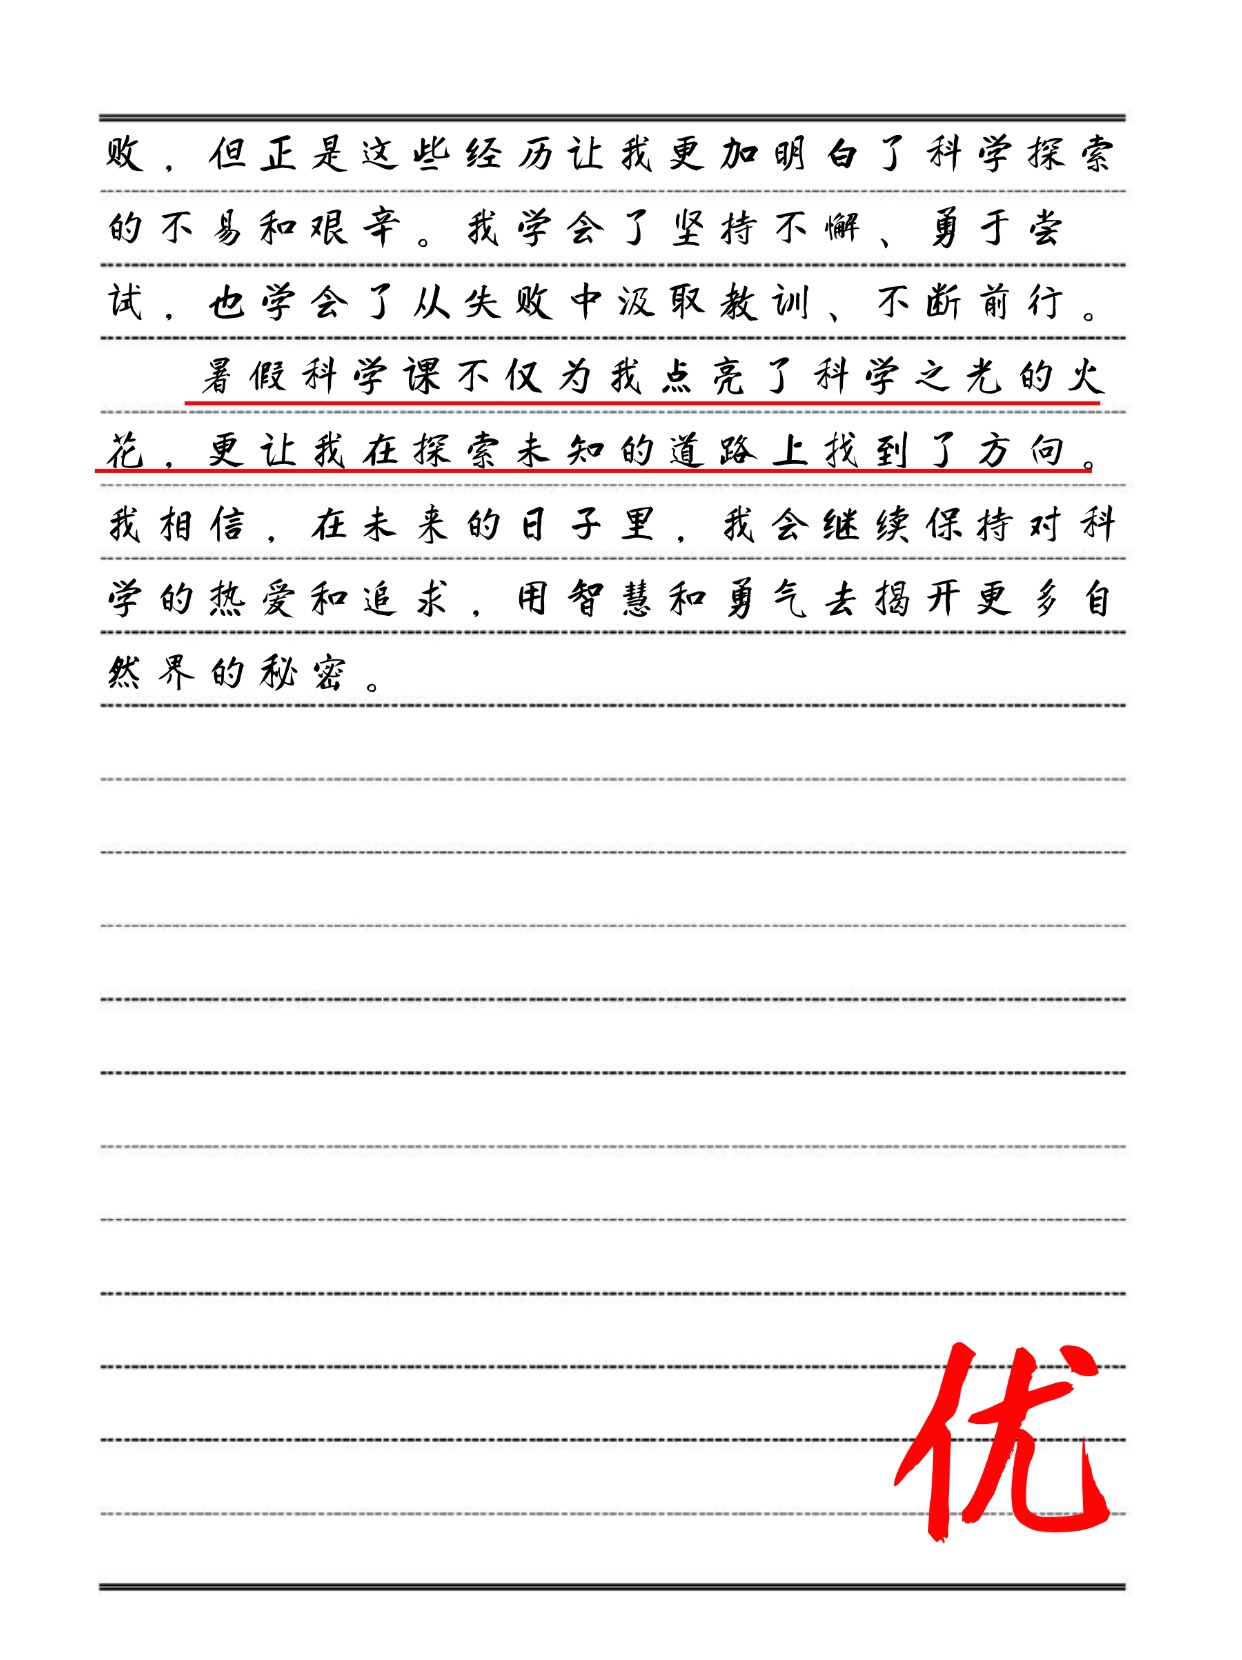 败，但正是这些经历让我更加明白了科学探索
的不易和艰辛。我学会了坚持不懈、勇于尝
试，也学会了从失败中汲取教训、不断前行。
暑假科学课不仅为我点亮了科学之光的火
花，更让我在探索未知的道路上找到了方向。
我相信，在未来的日子里，我会继续保持对科
学的热爱和追求，用智慧和勇气去揭开更多自
然界的秘密。
优